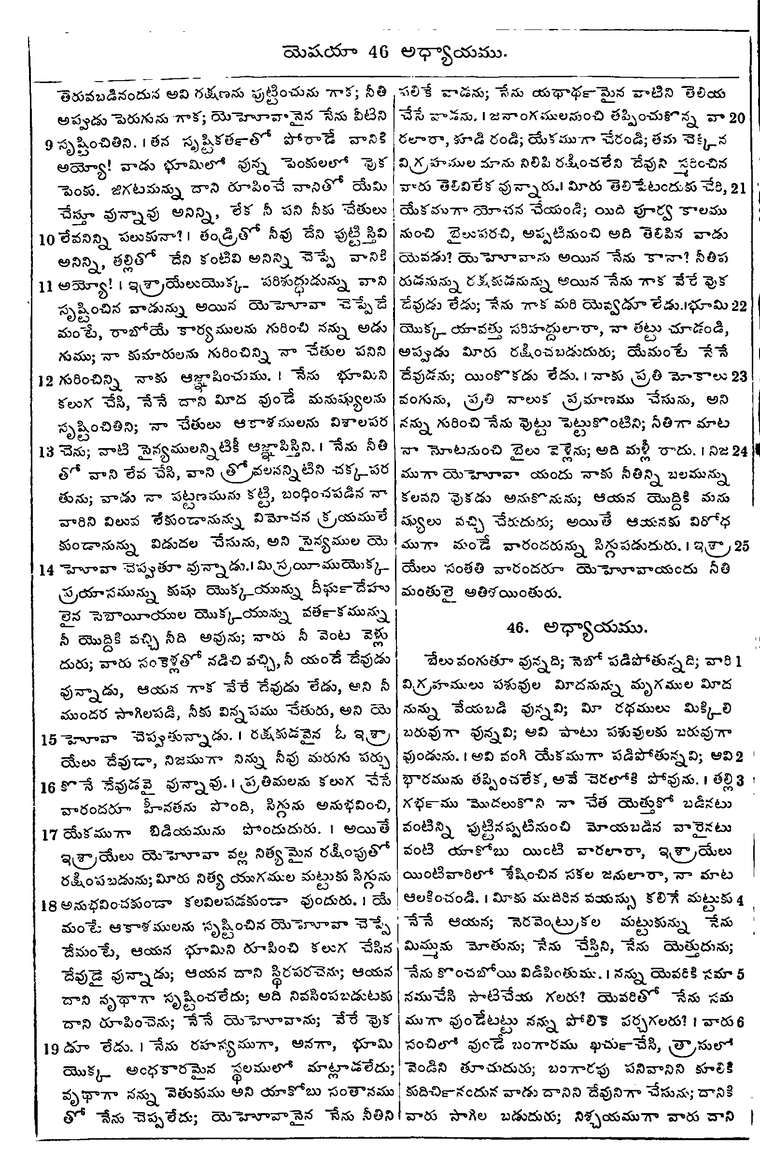 యెషయా 46 అధ్యాయము.
తెరువబడినందున అవి రక్షణను పుట్టించును గాక; నీతి
అప్పుడు పెరుగును గాక; యెహోవానైన నేను వీటిని
9 సృష్టించితిని. । తన సృష్టికర్తతో పోరాడే వానికి
అయ్యో! వాడు భూమిలో వున్న పెంకులలో వొక
పెంకు. జిగటమన్ను దాని రూపించే వానితో యేమి
చేస్తూ వున్నావు అనిన్ని, లేక నీ పని నీకు చేతులు
10 లేవనిన్ని పలుకునా? । తండ్రితో నీవు దేని పుట్టిస్తివి
అనిన్ని, తల్లితో దేని కంటివి అనిన్ని చెప్పే వానికి
11 అయ్యో! । ఇశ్రాయేలుయొక్క పరిశుద్ధుడున్ను వాని
సృష్టించిన వాడున్ను అయిన యెహోవా చెప్పేదే
మంటే, రాబోయే కార్యములను గురించి నన్ను అడు
గుము; నా కుమారులను గురించిన్ని నా చేతుల పనిని
12 గురించిన్ని నాకు ఆజ్ఞాపించుము. । నేను భూమిని
కలుగ చేసి, నేనే దాని మీద వుండే మనుష్యులను
సృష్టించితిని; నా చేతులు ఆకాశములను విశాలపర
13 చెను; వాటి సైన్యములన్నిటికీ ఆజ్ఞాపిస్తిని. । నేను నీతి
తో వాని లేవ చేసి, వాని త్రోవలనన్నిటిని చక్కపర
తును; వాడు నా పట్టణమును కట్టి, బంధించపడిన నా
వారిని విలువ లేకుండానున్ను విమోచన క్రయములే
కుండానున్ను విడుదల చేసును, అని సైన్యముల యె
14 హోవా చెప్పుతూ వున్నాడు. । మిస్రయీముయొక్క
ప్రయాసమున్ను కుషు యొక్కయున్ను దీర్ఘదేహు
లైన సెబాయీయుల యొక్కయున్ను వర్తకమున్ను
నీ యొద్దికి వచ్చి నీది అవును; వారు నీ వెంట వెళ్లు
దురు; వారు సంకెళ్లతో నడిచి వచ్చి, నీ యందే దేవుడు
వున్నాడు, ఆయన గాక వేరే దేవుడు లేడు, అని నీ
ముందర సాగిలపడి, నీకు విన్నపము చేతురు, అని యె
15 హోవా చెప్పుతున్నాడు. । రక్షకుడవైన ఓ ఇశ్రా
యేలు దేవుడా, నిజముగా నిన్ను నీవు మరుగు పర్చు
16 కొనే దేవుడవై వున్నావు. । ప్రతిమలను కలుగ చేసే
వారందరూ హీనతను పొంది, సిగ్గును అనుభవించి,
17 యేకముగా బిడియమును పొందుదురు. । అయితే
ఇశ్రాయేలు యెహోవా వల్ల నిత్యమైన రక్షింపుతో
రక్షింపబడును; మీరు నిత్య యుగముల మట్టుకు సిగ్గును
18 అనుభవించకుండా కలవిలపడకుండా వుందురు. । యే
మంటే ఆకాశములను సృష్టించిన యెహోవా చెప్పే
దేమంటే, ఆయన భూమిని రూపించి కలుగ చేసిన
దేవుడై వున్నాడు; ఆయన దాని స్థిరపరచెను; ఆయన
దాని వృథాగా సృష్టించలేదు; అది నివసింపబడుటకు
దాని రూపించెను; నేనే యెహోవాను; వేరే వొక
19 డూ లేడు. । నేను రహస్యముగా, అనగా, భూమి
యొక్క అంధకారమైన స్థలములో మాట్లాడలేదు;
వృథాగా నన్ను వెతుకుము అని యాకోబు సంతానము
తో నేను చెప్పలేదు; యెహోవానైన నేను నీతిని
పలికే వాడను; నేను యథార్థమైన వాటిని తెలియ
చేసే వాడను. । జనాంగములనుంచి తప్పించుకొన్న వా 20
రలారా, కూడి రండి; యేకముగా చేరండి; తమ చెక్కిన
విగ్రహముల మాను నిలిపి రక్షించలేని దేవుని స్మరించిన
వారు తెలివిలేక వున్నారు. । మీరు తెలిపేటందుకు చేరి, 21
యేకముగా యోచన చేయండి; యిది పూర్వ కాలము
నుంచి బైలుపరచి, అప్పటినుంచి అది తెలిపిన వాడు
యెవడు? యెహోవాను అయిన నేను కానా? నీతిప
రుడనున్ను రక్షకుడనున్ను అయిన నేను గాక వేరే వొక
దేవుడు లేడు; నేను గాక మరి యెవ్వడూ లేడు. । భూమి 22
యొక్క యావత్తు సరిహద్దులారా, నా తట్టు చూడండి,
అప్పుడు మీరు రక్షించబడుదురు; యేమంటే నేనే
దేవుడను; యింకొకడు లేడు. । నాకు ప్రతి మోకాలు 23
వంగును, ప్రతి నాలుక ప్రమాణము చేసును, అని
నన్ను గురించి నేను వొట్టు పెట్టుకొంటిని; నీతిగా మాట
నా నోటనుంచి బైలు వెళ్లెను; అది మళ్లీ రాదు. । నిజ 24
ముగా యెహోవా యందు నాకు నీతిన్ని బలమున్ను
కలవని వొకడు అనుకొనును; ఆయన యొద్దికి మను
ష్యులు వచ్చి చేరుదురు; అయితే ఆయనకు విరోధ
ముగా మండే వారందరున్ను సిగ్గుపడుదురు. । ఇశ్రా 25
యేలు సంతతి వారందరూ యెహోవాయందు నీతి
మంతులై అతిశయింతురు.
46. అధ్యాయము.
బేలు వంగుతూ వున్నది; నెబో పడిపోతున్నది; వారి 1
విగ్రహములు పశువుల మీదనున్ను మృగముల మీద
నున్ను వేయబడి వున్నవి; మీ రథములు మిక్కిలి
బరువుగా వున్నవి; అవి పాటు పశువులకు బరువుగా
వుండును. । అవి వంగి యేకముగా పడిపోతున్నవి; అవి 2
భారమును తప్పించలేక, అవే చెరలోకి పోవును. । తల్లి 3
గర్భము మొదలుకొని నా చేత యెత్తుకో బడినటు
వంటిన్ని పుట్టినప్పటినుంచి మోయబడిన వారైనటు
వంటి యాకోబు యింటి వారలారా, ఇశ్రాయేలు
యింటివారిలో శేషించిన సకల జనులారా, నా మాట
ఆలకించండి. । మీకు ముదిరిన వయస్సు కలిగే మట్టుకు 4
నేనే ఆయన; నెరవెంట్రుకల మట్టుకున్ను నేను
మిమ్మును మోతును; నేను చేస్తిని, నేను యెత్తుదును;
నేను కొంచబోయి విడిపింతుము. । నన్ను యెవరికి సమా 5
నముచేసి సాటిచేయ గలరు? యెవరితో నేను సమ
ముగా వుండేటట్టు నన్ను పోలికె పర్చగలరు? । వారు 6
సంచిలో వుండే బంగారము ఖర్చుచేసి, త్రాసులో
వెండిని తూచుదురు; బంగారపు పనివానిని కూలికి
కుదిర్చినందున వాడు దానిని దేవునిగా చేసును; దానికి
వారు సాగిల బడుదురు; నిశ్చయముగా వారు దాని